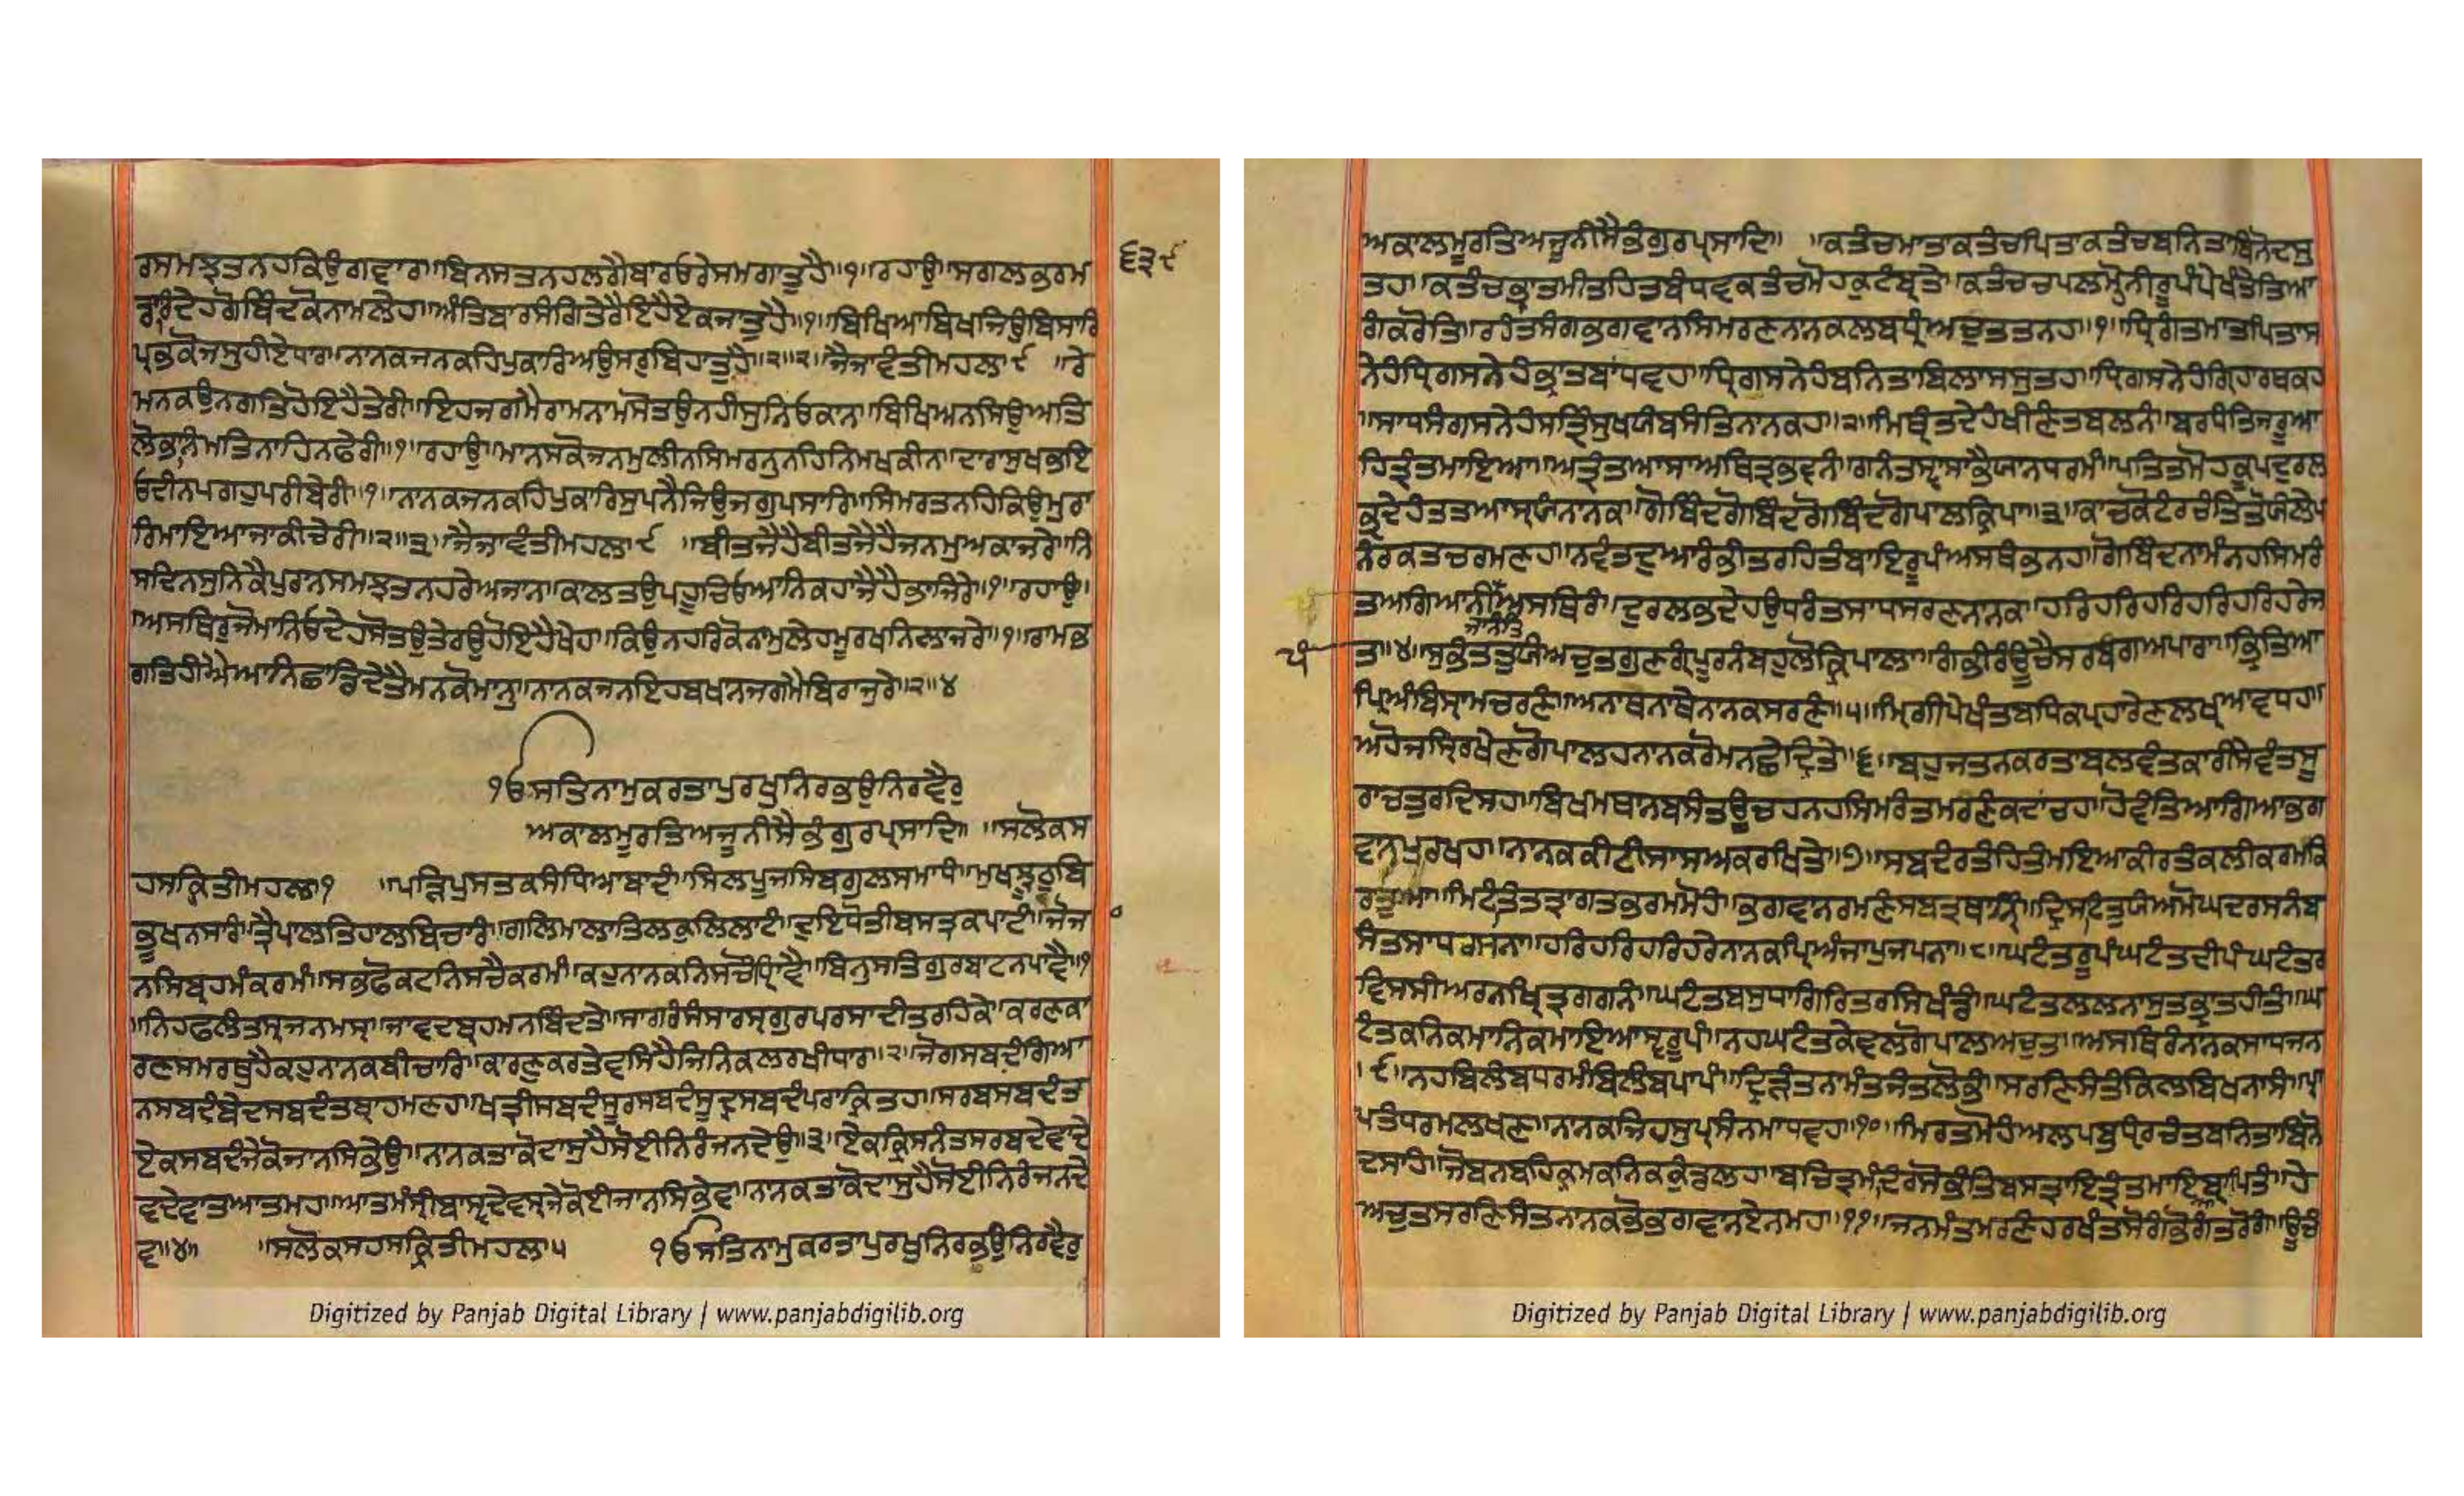 ਰਸਮਝਤਨਹਕਿਉਗਵਾਰਾ॥ਬਿਨਸਤਨਹਲਗੈਬਾਰਓਰੇਸਮਗਾਤੁਹੈ॥੧॥ਰਹਾਉ॥ਸਗਲਭਰਮ
ਡਾਰਿਦੇਹਗੋਬਿੰਦਕੋਨਾਮਲੇਹਾ॥ਅੰਤਿਬਾਰਸੰਗਿਤੇਰੈਇਹੈਏਕਜਾਤੁਹੈ॥੧॥ਬਿਖਿਆਬਿਖਜਿਉਬਿਸਾਰਿ
ਪ੍ਰਭਕੋਜਸੁਹੀਏਧਾਰਾ॥ਨਾਨਕਜਨਕਹਿਪੁਕਾਰਿਅਉਸਰੁਬਿਹਾਤੁਹੈ॥੨॥੨॥ਜੈਜਾਵੰਤੀਮਹਲਾ੯ ॥ਰੇ
ਮਨਕਉਨਗਤਿਹੋਇਹੈਤੇਰੀ॥ਇਹਜਗਮੈਰਾਮਨਾਮਸੋਤਉਨਹੀਸੁਨਿਓਕਾਨਾ॥ਬਿਖਿਅਨਸਿਉਅਤਿ
ਲੋਭਾਨਿਮਤਿਨਾਹਿਨਫੇਰੀ॥੧॥ਰਹਾਉ॥ਮਾਨਸਕੋਜਨਮੁਲੀਨਸਿਮਰਨੁਨਹਿਨਿਮਖਕੀਨਾ॥ਦਾਰਾਸੁਖਭਇ
ਓਦੀਨਪਗਹੁਪਰੀਬੇਰੀ॥੧॥ਨਾਨਕਜਨਕਹਿਪੁਕਾਰਿਸੁਪਨੈਜਿਉਜਗੁਪਸਾਰਿ॥ਸਿਮਰਤਨਹਿਕਿਉਮੁਰਾ
ਰਿਮਾਇਆਜਾਕੀਚੇਰੀ॥੨॥੩॥ਜੈਜਾਵੰਤੀਮਹਲਾ੯ ॥ਬੀਤਜੈਹੈਬੀਤਜੈਹੈਜਨਮੁਅਕਾਜਰੇ॥ਨਿ
ਸਦਿਨਸੁਨਿਕੈਪੁਰਾਨਸਮਝਤਨਹਰੇਅਜਾਨਾ॥ਕਾਲਤਉਪਹੂਚਿਓਆਨਿਕਹਾਜੈਹੈਭਾਜਿਰੇ॥੧॥ਰਹਾਉ॥
॥ਅਸਥਿਰੁਜੋਮਾਨਿਓਦੇਹਸੋਤਉਤੇਰਉਹੋਇਹੈਖੇਹਾ॥ਕਿਉਨਹਰਿਕੋਨਾਮੁਲੇਹਮੂਰਖਨਿਲਾਜਰੇ॥੧॥ਰਾਮਭ
ਗਤਿਹੀਐਆਨਿਛਾਡਿਦੇਤੈਮਨਕੋਮਾਨੁ॥ਨਾਨਕਜਨਇਹਬਖਾਨਜਗਮੈਬਿਰਾਜੁਰੇ॥੨॥੪
੧ਓਸਤਿਨਾਮੁਕਰਤਾਪੁਰਖੁਨਿਰਭਉਨਿਰਵੈਰੁ
ਅਕਾਲਮੂਰਤਿਅਜੂਨੀਸੈਭੰਗੁਰਪ੍ਰਸਾਦਿ॥ ॥ਸਲੋਕਸ
ਹਸਕ੍ਰਿਤੀਮਹਲਾ੧ ॥ਪੜ੍ਹਿਪੁਸਤਕਸੰਧਿਆਬਾਦੰ॥ਸਿਲਪੂਜਸਿਬਗੁਲਸਮਾਧੰ॥ਮੁਖਝੂਠੁਬਿ
ਭੂਖਨਸਾਰੰ॥ਤ੍ਰੈਪਾਲਤਿਹਾਲਬਿਚਾਰੰ॥ਗਲਿਮਾਲਾਤਿਲਕੁਲਿਲਾਟੰ॥ਦੁਇਧੋਤੀਬਸਤ੍ਰਕਪਾਟੰ॥ਜੋਜ
ਨਸਿਬ੍ਰਹਮੰਕਰਮੰ॥ਸਭਫੋਕਟਨਿਸਚੈਕਰਮੰ॥ਕਹੁਨਾਨਕਨਿਸਚੌਧ੍ਯਿਾਵੈ॥ਬਿਨੁਸਤਿਗੁਰਬਾਟਨਪਾਵੈ॥੧
॥ਨਿਹਫਲੰਤਸ੍ਯਜਨਮਸ੍ਯ॥ਜਾਵਦਬ੍ਰਹਮਨਬਿੰਦਤੇ॥ਸਾਗਰੰਸੰਸਾਰਸ੍ਯਗੁਰਪਰਸਾਦੀਤਰਹਿਕੇ॥ਕਰਣਕਾ
ਰਣਸਮਰਥੁਹੈਕਹੁਨਾਨਕਬੀਚਾਰਿ॥ਕਾਰਣੁਕਰਤੇਵਸਿਹੈਜਿਨਿਕਲਰਖੀਧਾਰਿ॥੨॥ਜੋਗਸਬਦੰਗਿਆ
ਨਸਬਦੰਬੇਦਸਬਦੰਤਬ੍ਰਾਹਮਣਹ॥ਖਤ੍ਰੀਸਬਦੰਸੂਰਸਬਦੰਸੂਦ੍ਰਸਬਦੰਪਰਾਕ੍ਰਿਤਹ॥ਸਰਬਸਬਦੰਤ
ਏਕਸਬਦੰਜੇਕੋਜਾਨਸਿਭੇਉ॥ਨਾਨਕਤਾਕੋਦਾਸੁਹੈਸੋਈਨਿਰੰਜਨਦੇਉ॥੩॥ਏਕਕ੍ਰਿਸਨੰਤਸਰਬਦੇਵਾਦੇ
ਵਦੇਵਾਤਆਤਮਹ॥ਆਤਮੰਸ੍ਰੀਬਾਸ੍ਵਦੇਵਸ੍ਯਜੇਕੋਈਜਾਨਸਿਭੇਵ॥ਨਾਨਕਤਾਕੋਦਾਸੁਹੈਸੋਈਨਿਰੰਜਨਦੇ
ਵ॥੪॥ ॥ਸਲੋਕਸਹਸਕ੍ਰਿਤੀਮਹਲਾ੫ ੧ਓਸਤਿਨਾਮੁਕਰਤਾਪੁਰਖੁਨਿਰਭਉਨਿਰਵੈਰੁ
੬੩੯
Digitized by Panjab Digital Library | www.panjabdigilib.org
ਅਕਾਲਮੂਰਤਿਅਜੂਨੀਸੈਭੰਗੁਰਪ੍ਰਸਾਦਿ॥ ॥ਕਤੰਚਮਾਤਾਕਤੰਚਪਿਤਾਕਤੰਚਬਨਿਤਾਬਿਨੋਦਸੁ
ਤਹ॥ਕਤੰਚਭ੍ਰਾਤਮੀਤਹਿਤਬੰਧਵਕਤੰਚਮੋਹਕੁਟੰਬ੍ਯਤੇ॥ਕਤੰਚਚਪਲਮੋਹਨੀਰੂਪੰਪੇਖੰਤੇਤਿਆ
ਗੰਕਰੋਤਿ॥ਰਹੰਤਸੰਗਭਗਵਾਨਸਿਮਰਣਨਾਨਕਲਬਧ੍ਯੰਅਚੁਤਤਨਹ॥੧॥ਧ੍ਰਿਗੰਤਮਾਤਪਿਤਾਸ
ਨੇਹੰਧ੍ਰਿਗਸਨੇਹੰਭ੍ਰਾਤਬਾਂਧਵਹ॥ਧ੍ਰਿਗਸਨੇਹੰਬਨਿਤਾਬਿਲਾਸਸੁਤਹ॥ਧ੍ਰਿਗਸਨੇਹੰਗ੍ਰਿਹਾਰਥਕਹ
॥ਸਾਧਸੰਗਸਨੇਹਸਤ੍ਯਿੰਸੁਖਯੰਬਸੰਤਿਨਾਨਕਹ॥੨॥ਮਿਥ੍ਯੰਤਦੇਹੰਖੀਣੰਤਬਲਨੰ॥ਬਰਧੰਤਿਜਰੂਆ
ਹਿਤ੍ਯੰਤਮਾਇਆ॥ਅਤ੍ਯੰਤਆਸਾਅਥਿਤ੍ਯਭਵਨੰ॥ਗਨੰਤਸ੍ਵਾਸਾਭੈਯਾਨਧਰਮੰ॥ਪਤਿਤਮੋਹਕੂਪਦੁਰਲ
ਭ੍ਯਦੇਹੰਤਤਆਸ੍ਰਯੰਨਾਨਕ॥ਗੋਬਿੰਦਗੋਬਿੰਦਗੋਬਿੰਦਗੋਪਾਲਕ੍ਰਿਪਾ॥੩॥ਕਾਚਕੋਟੰਰਚੰਤਿਤੋਯੰਲੇਪ
ਨੰਰਕਤਚਰਮਣਹ॥ਨਵੰਤਦੁਆਰੰਭੀਤਰਹਿਤੰਬਾਇਰੂਪੰਅਸਥੰਭਨਹ॥ਗੋਬਿੰਦਨਾਮੰਨਹਸਿਮਰੰ
ਤਅਗਿਆਨੀਅਸਥਿਰੰ॥ਦੁਰਲਭਦੇਹਉਧਰੰਤਸਾਧਸਰਣਨਾਨਕ॥ਹਰਿਹਰਿਹਰਿਹਰਿਹਰਿਹਰੇਜ
ਜਾਨੰਤਿ
ਪੰ
ਤ॥੪॥ਸੁਭੰਤਤੁਯੰਅਚੁਤਗੁਣਗ੍ਯੰਪੂਰਨੰਬਹੁਲੋਕ੍ਰਿਪਾਲਾ॥ਗੰਭੀਰੰਊਚੈਸਰਬਗਿਅਪਾਰਾ॥ਭ੍ਰਿਤਿਆ
ਪ੍ਰਿਅੰਬਿਸ੍ਰਾਮਚਰਣੰ॥ਅਨਾਥਨਾਥੇਨਾਨਕਸਰਣੰ॥੫॥ਮ੍ਰਿਗੀਪੇਖੰਤਬਧਿਕਪ੍ਰਹਾਰੇਣਲਖ੍ਯਆਵਧਹ॥
ਅਹੋਜਸ੍ਯਿਰਖੇਣਗੋਪਾਲਹਨਾਨਕਰੋਮਨਛੇਦ੍ਯਿਤੇ॥੬॥ਬਹੁਜਤਨਕਰਤਾਬਲਵੰਤਕਾਰੀਸੇਵੰਤਸੂ
ਰਾਚਤੁਰਦਿਸਹ॥ਬਿਖਮਥਾਨਬਸੰਤਊਚਹਨਹਸਿਮਰੰਤਮਰਣੰਕਦਾਂਚਹ॥ਹੋਵੰਤਿਆਗਿਆਭਗ
ਵਾਨਪੁਰਖਹ॥ਨਾਨਕਕੀਟੀਸਾਸਅਕਰਖਿਤੇ॥੭॥ਸਬਦੰਰਤੰਹਿਤੰਮਇਆਕੀਰਤੰਕਲੀਕਰਮਕ੍ਰਿ
ਰਤੁਆ॥ਮਿਟੰਤਿਤਤ੍ਰਾਗਤਭਰਮਮੋਹੰ॥ਭਗਵਾਨਰਮਣੰਸਰਬਤ੍ਰਥਾਨ੍ਯਿੰ॥ਦ੍ਰਿਸਟਤੁਯੰਅਮੋਘਦਰਸਨੰਬ
ਸੰਤਸਾਧਰਸਨਾ॥ਹਰਿਹਰਿਹਰਿਹਰੇਨਾਨਕਪ੍ਰਿਅੰਜਾਪੁਜਪਨਾ॥੮॥ਘਟੰਤਰੂਪੰਘਟੰਤਦੀਪੰਘਟੰਤਰ
ਵਿਸਸੀਅਰਨਖ੍ਯਿਤ੍ਰਗਗਨੰ॥ਘਟੰਤਬਸੁਧਾਗਿਰਿਤਰਸਿਖੰਡੰ॥ਘਟੰਤਲਲਨਾਸੁਤਭ੍ਰਾਤਹੀਤੰ॥ਘ
ਟੰਤਕਨਿਕਮਾਨਿਕਮਾਇਆਸ੍ਵਰੂਪੰ॥ਨਹਘਟੰਤਕੇਵਲਗੋਪਾਲਅਚੁਤ॥ਅਸਥਿਰੰਨਾਨਕਸਾਧਜਨ
॥੯॥ਨਹਬਿਲੰਬਧਰਮੰਬਿਲੰਬਪਾਪੰ॥ਦ੍ਰਿੜੰਤਨਾਮੰਤਜੰਤਲੋਭੰ॥ਸਰਣਿਸੰਤੰਕਿਲਬਿਖਨਾਸੰ॥ਪ੍ਰਾ
ਪਤੰਧਰਮਲਖਣ॥ਨਾਨਕਜਿਹਸੁਪ੍ਰਸੰਨਮਾਧਵਹ॥੧੦॥ਮਿਰਤਮੋਹੰਅਲਪਬੁਧ੍ਯਿਰਚੰਤਬਨਿਤਾਬਿਨੋ
ਦਸਾਹੰ॥ਜੋਬਨਬਹਿਕ੍ਰਮਕਨਿਕਕੁੰਡਲਹ॥ਬਚਿਤ੍ਰਮੰਦਿਰਸੋਭੰਤਿਬਸਤ੍ਰਾਇਤ੍ਯੰਤਮਾਇਆਬ੍ਯਾਪਿਤੰ॥ਹੇ
ਅਚੁਤਸਰਣਿਸੰਤਨਾਨਕਭੋਭਗਵਾਨਏਨਮਹ॥੧੧॥ਜਨਮੰਤਮਰਣੰਹਰਖੰਤਸੋਗੰਭੋਗੰਤਰੋਗੰ॥ਊਚੰ
Digitized by Panjab Digital Library | www.panjabdigilib.org